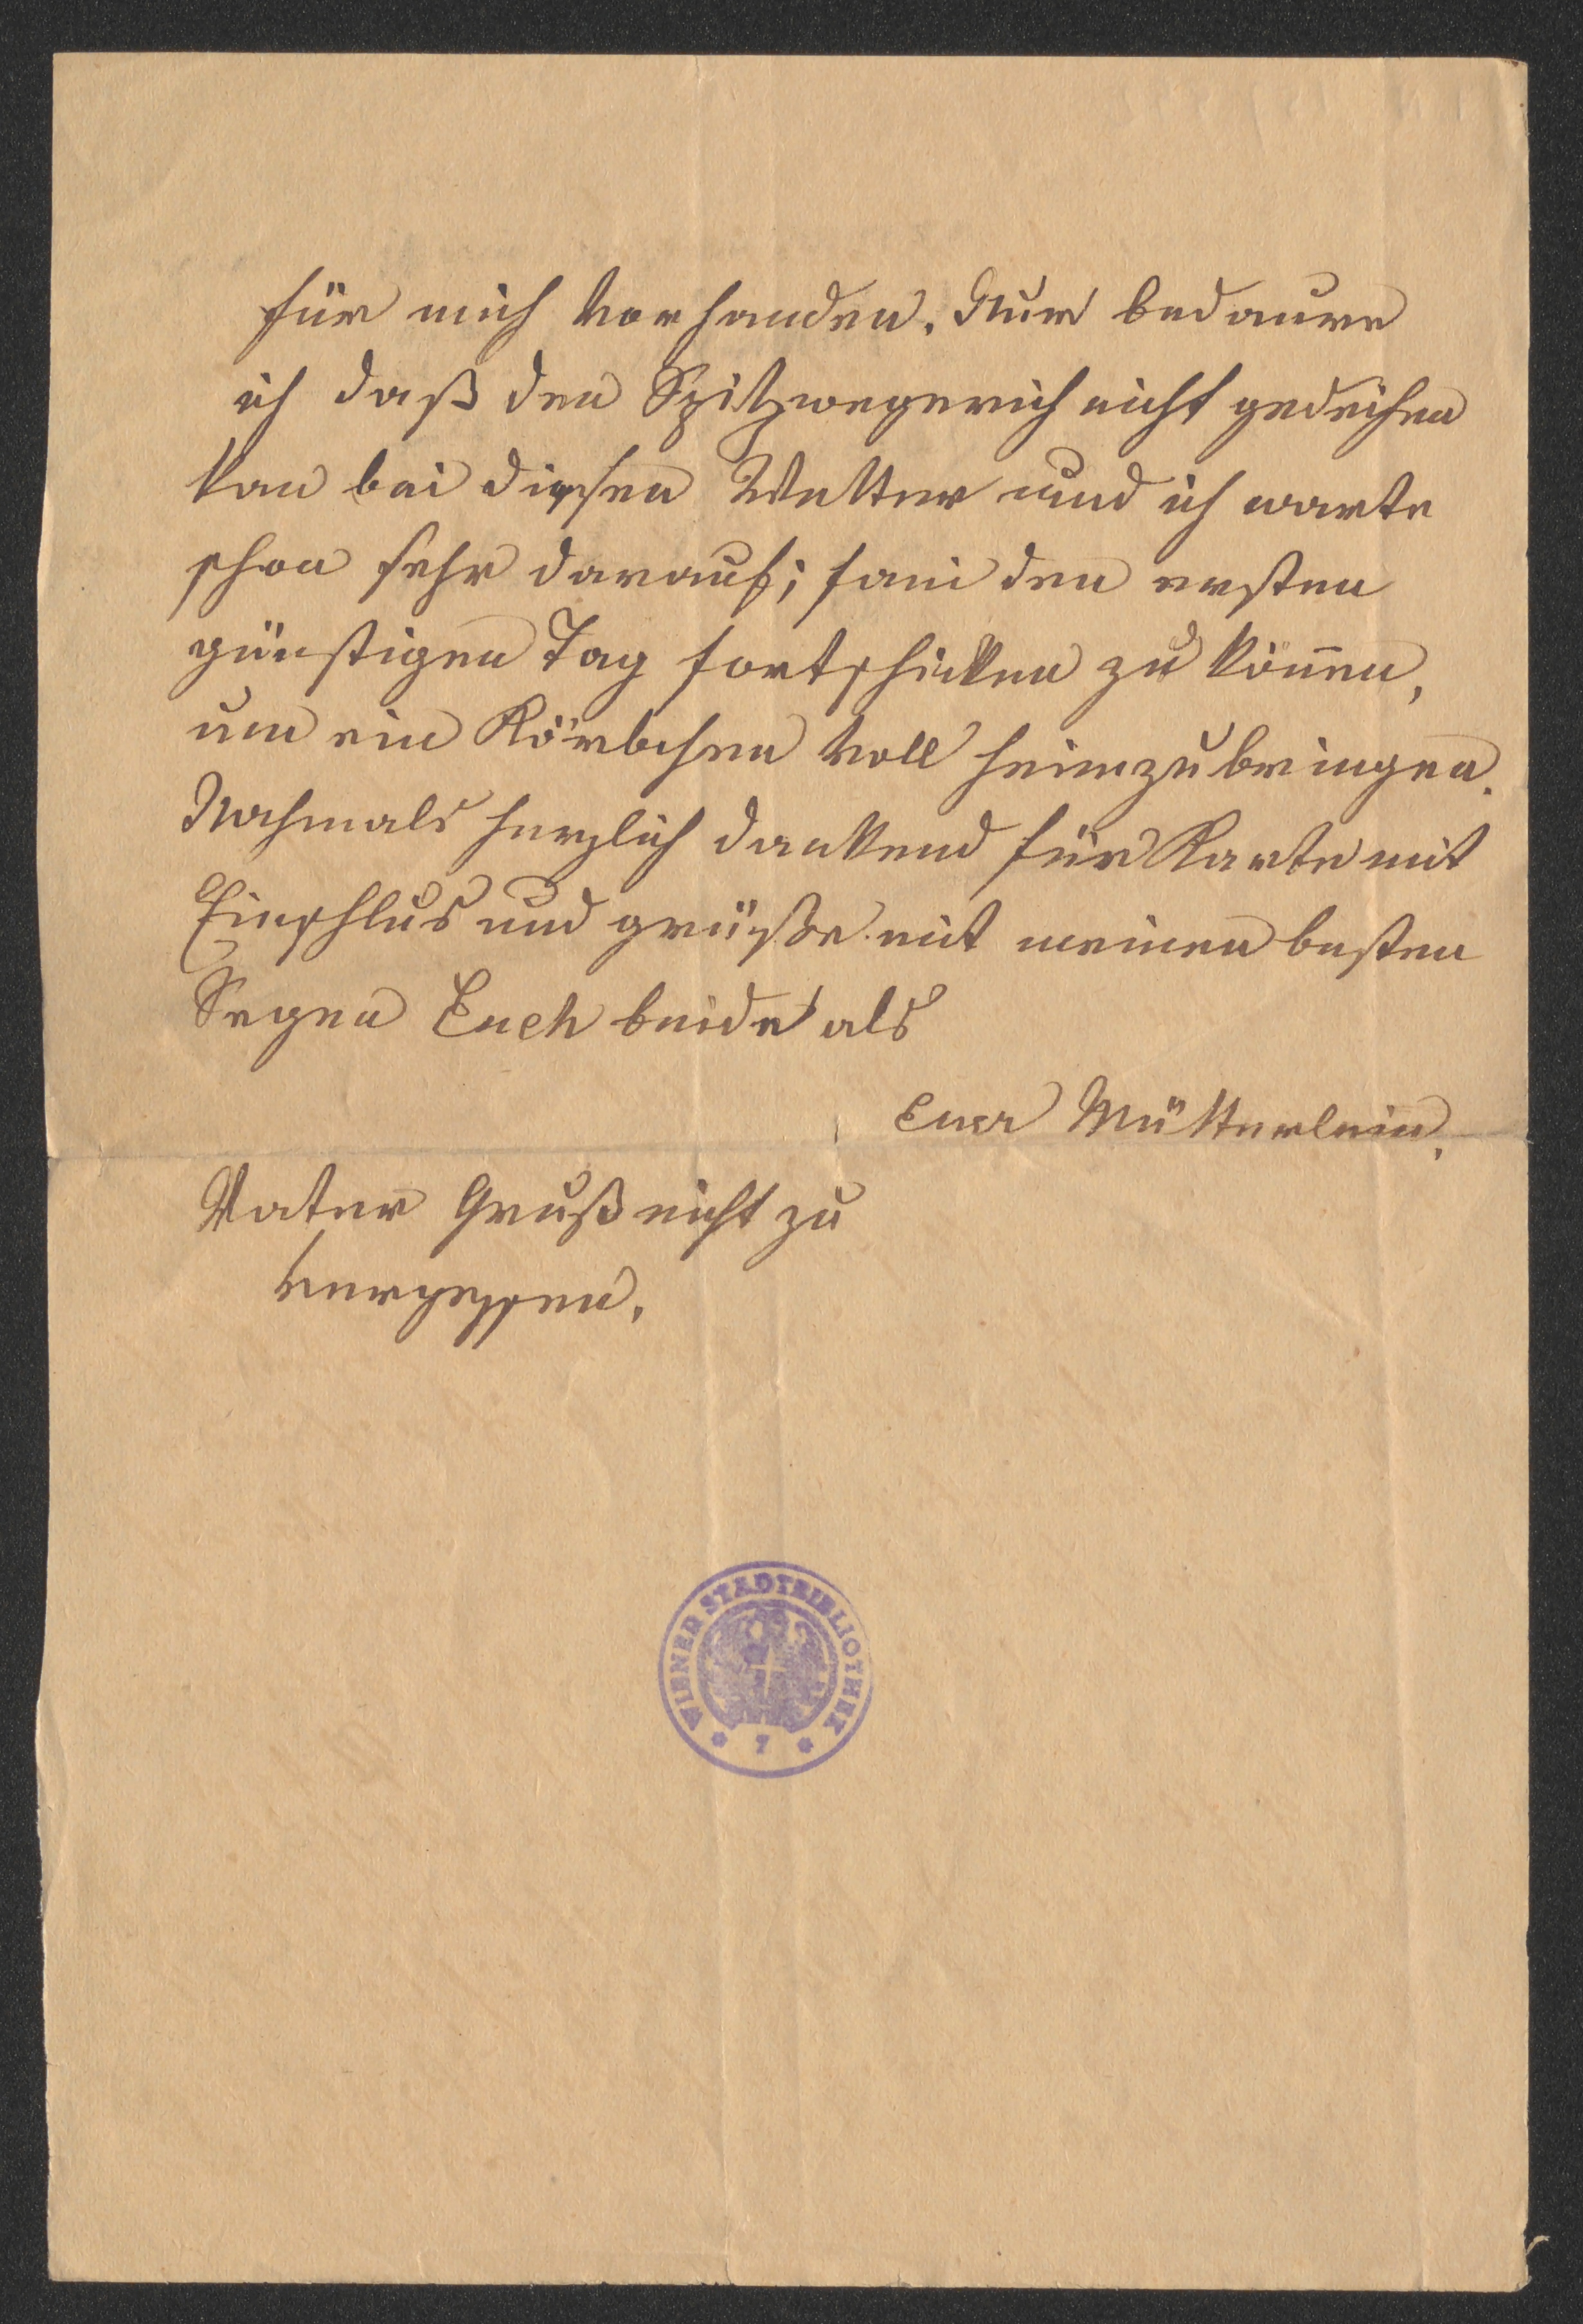 für mich vorhanden. Nur bedaure
ich daß den Spitzwegerich nicht gedeihen
kan bei diesen Wetter und ich warte
schon sehr darauf; fani den ersten
günstigen Tag fortschicken zu können,
um ein Körbchen voll heimzubringen.
Nochmals herzlich dankend für Karte mit
Einschlus und grüße mit meinen besten
Segen Euch beide als
Euer Mütterlein.
Vater Gruß nicht zu
vergessen.
WIENER STADTBIBLIOTHEK
* 7 *